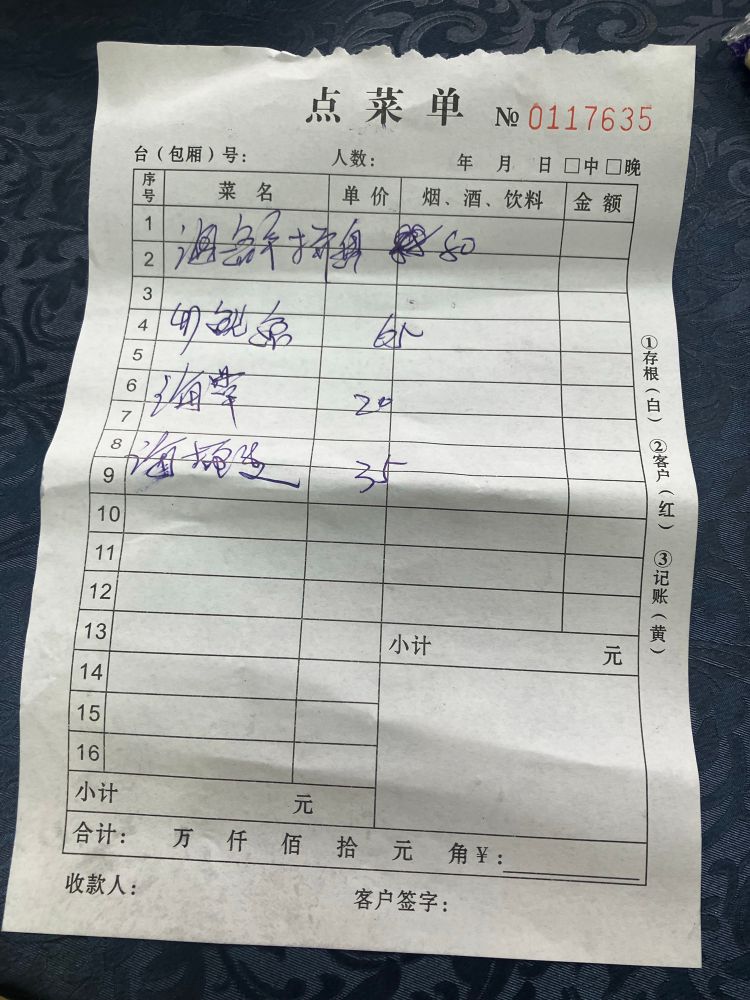 点菜单 № 0117635
台（包厢）号： 人数： 年 月 日 □中 □晚
序号 菜名 单价 烟、酒、饮料 金额
1
2 海 拼盘 80
3
4 65
5
6 海草 20
7
8 海
9 35
10
11
12
13 小计 元
14
15
16
小计 元
合计： 万 仟 佰 拾 元 角 ¥：
收款人： 客户签字：
①存根（白） ②客户（红） ③记账（黄）